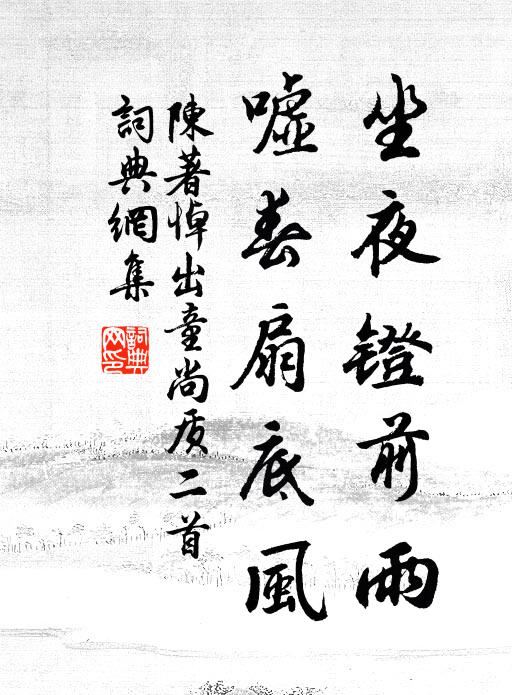 坐夜鐙前雨
噓春扇底風
陳著悼出童尚质二首
詞典網集
詞典
网印